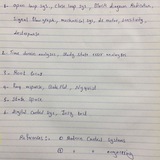 1. Open loop sys., close loop sys, Block diagram Reduction,
Signal flowgraph, mechanical sys, dc motor, sensitivity,
2. Time domain analysis, steady state error analysis
3. Root locus
4. Freq. response, Bode Plot, Nyquist
5. State Space
6. digital control sys, Jury test
References: - ① Modern Control Systems
② " " Engineering